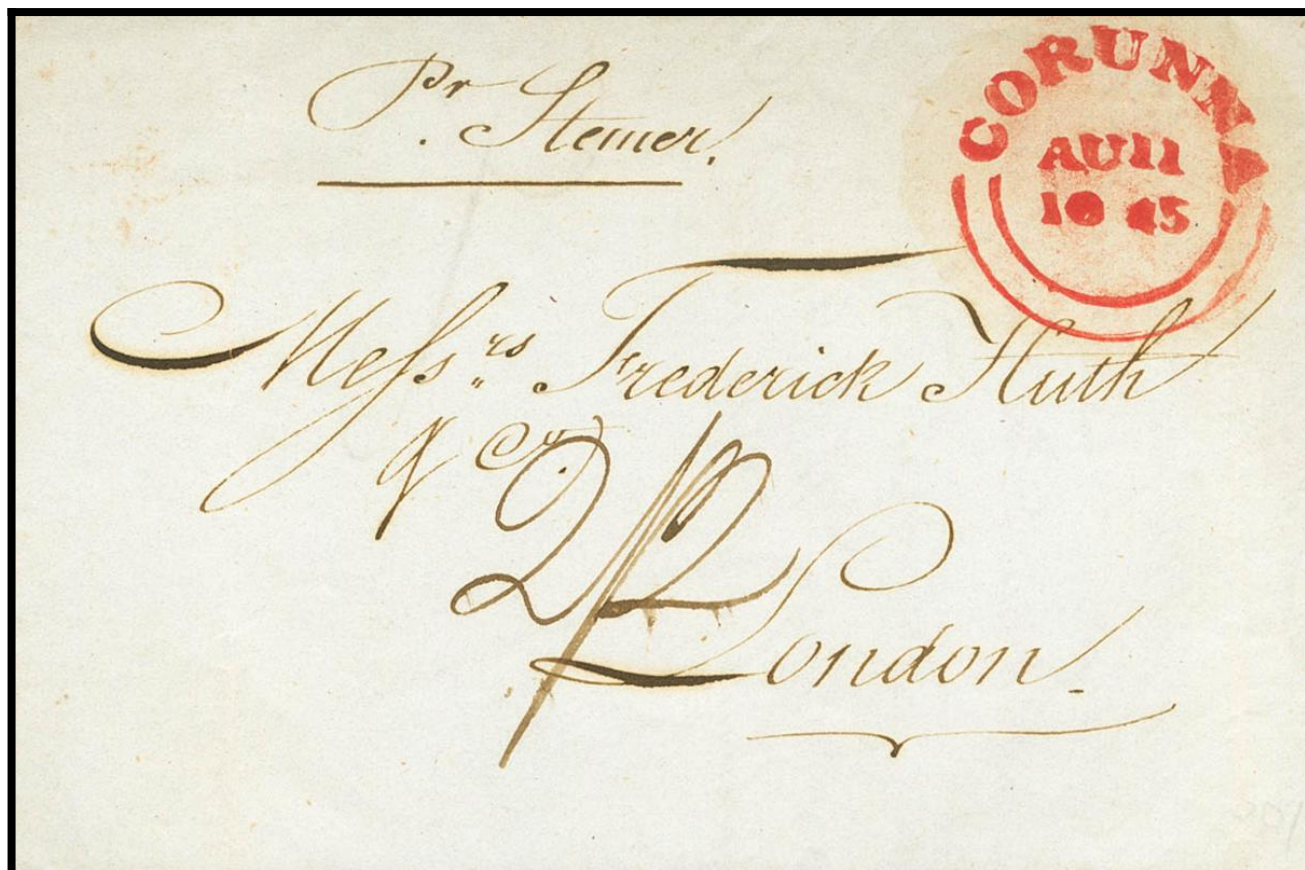 Pr Stemer.
CORUNNA
AU 11
18 45
Messrs Frederick Huth
& Co.
2/2
London.